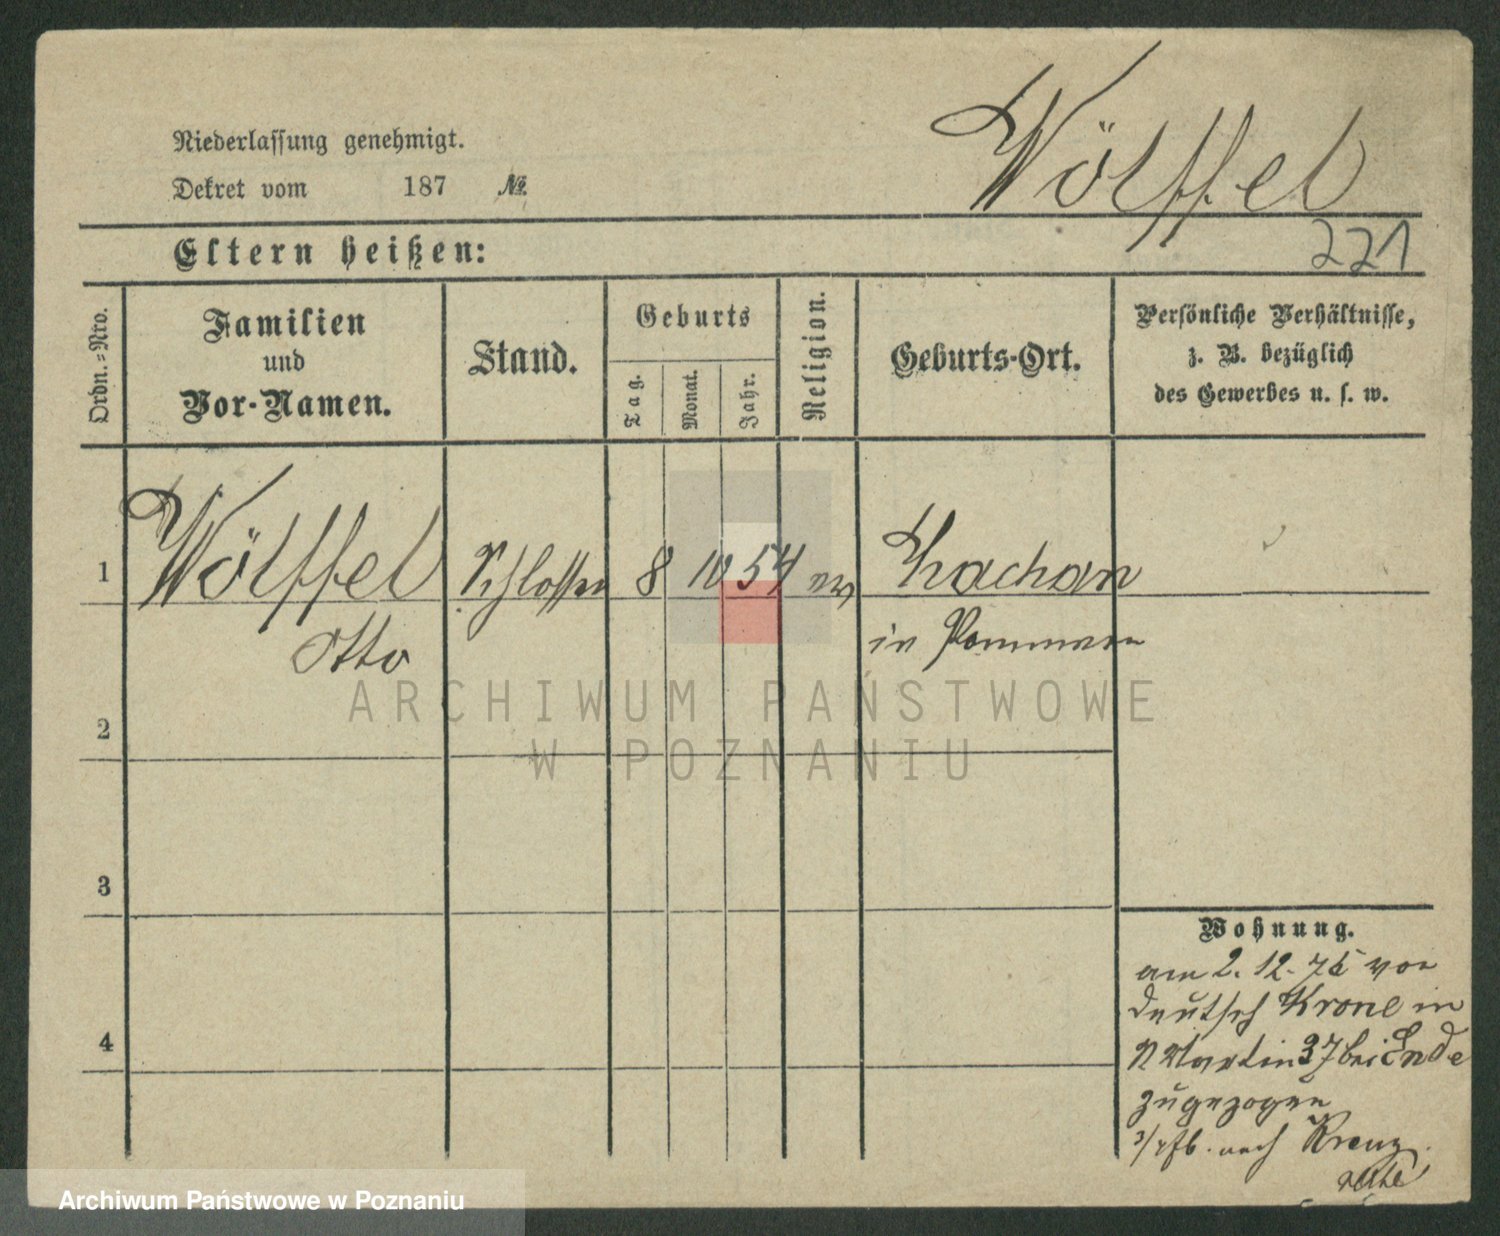 Wölffel
Niederlassung genehmigt.
Dekret vom 187 №
221
Eltern heißen:
Ordn.-Nro.
Familien
und
Vor-Namen.
Stand.
Geburts
Tag.
Monat.
Jahr.
Religion.
Geburts-Ort.
Persönliche Verhältnisse,
z. B. bezüglich
des Gewerbes u. s. w.
1 Wölffel Schlosser 8 10 54 ev Zachan
Otto in Pommern
ARCHIWUM PAŃSTWOWE
W POZNANIU
2
3
4
Wohnung.
am 2. 12. 75 von
Deutsch Krone in
St Martin 37 bei Ende
zugezogen
nach Kreuz
Archiwum Państwowe w Poznaniu